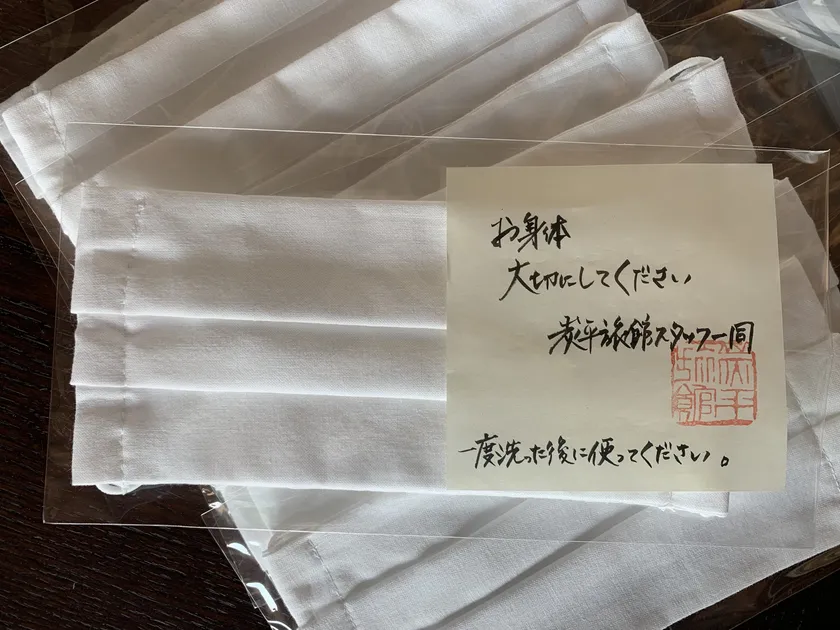 お身体
大切にしてください
炭平旅館スタッフ一同
炭平旅館
一度洗った後に使ってください。